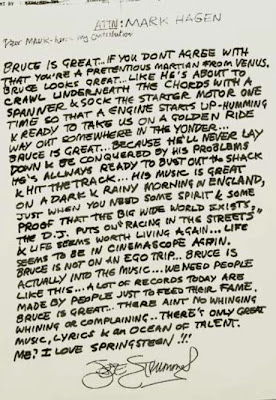 ATTN: MARK HAGEN
Dear MARK - here my contribution
BRUCE IS GREAT... IF YOU DON'T AGREE WITH
THAT YOU'RE A PRETENTIOUS MARTIAN FROM VENUS.
BRUCE LOOKS GREAT... LIKE HE'S ABOUT TO
CRAWL UNDERNEATH THE CHORDS WITH A
SPANNER & SOCK THE STARTER MOTOR ONE
TIME SO THAT A ENGINE STARTS UP-HUMMING
& READY TO TAKE US ON A GOLDEN RIDE
WAY OUT SOMEWHERE IN THE YONDER...
BRUCE IS GREAT... BECAUSE HE'LL NEVER LAY
DOWN & BE CONQUERED BY HIS PROBLEMS
HE'S ALLWAYS READY TO BUST OUT THE SHACK
& HIT THE TRACK... HIS MUSIC IS GREAT
ON A DARK & RAINY MORNING IN ENGLAND,
JUST WHEN YOU NEED SOME SPIRIT & SOME
PROOF THAT THE BIG WIDE WORLD EXISTS,
THE D.J. PUTS ON "RACING IN THE STREETS"
& LIFE SEEMS WORTH LIVING AGAIN... LIFE
SEEMS TO BE IN CINEMASCOPE AGAIN.
BRUCE IS NOT ON AN EGO TRIP.. BRUCE IS
ACTUALLY INTO THE MUSIC... WE NEED PEOPLE
LIKE THIS... A LOT OF RECORDS TODAY ARE
MADE BY PEOPLE JUST TO FEED THEIR FAME.
BRUCE IS GREAT... THERE AINT NO WHINGING
WHINING OR COMPLAINING.. THERE'S ONLY GREAT
MUSIC, LYRICS & AN OCEAN OF TALENT.
ME? I LOVE SPRINGSTEEN !!!
Joe Strummer